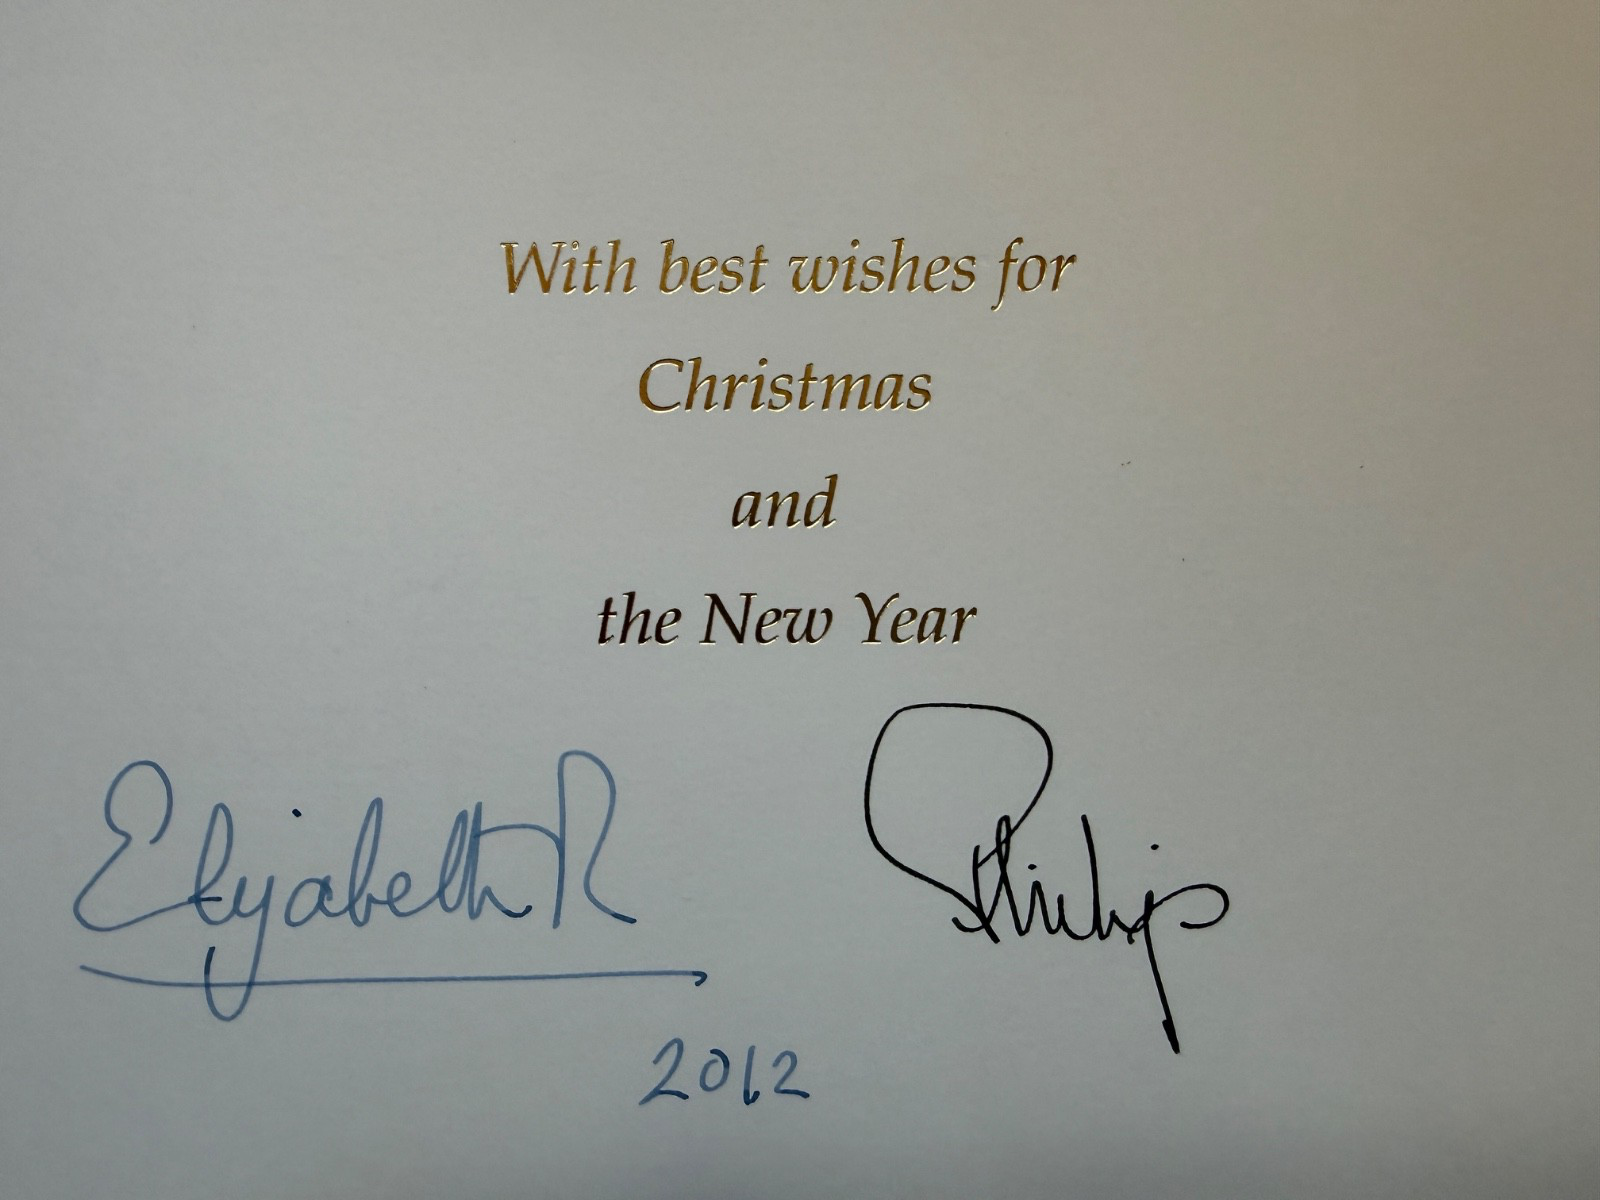 With best wishes for
Christmas
and
the New Year
Elizabeth R
Philip
2012